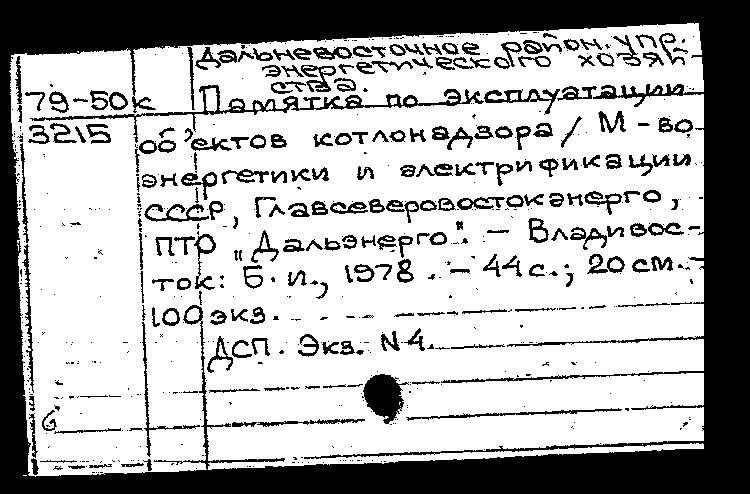 Дальневосточное район. упр.
энергетического хозяй-
ства.
79-50к Памятка по эксплуатации
3215 об'ектов котлонадзора / М-во
энергетики и электрификации
СССР, Главсеверовостокэнерго,
ПТО „Дальэнерго". - Владивос-
ток: Б. и., 1978. - 44 с.; 20 см. -
100 экз.
ДСП. Экз. N 4.
б